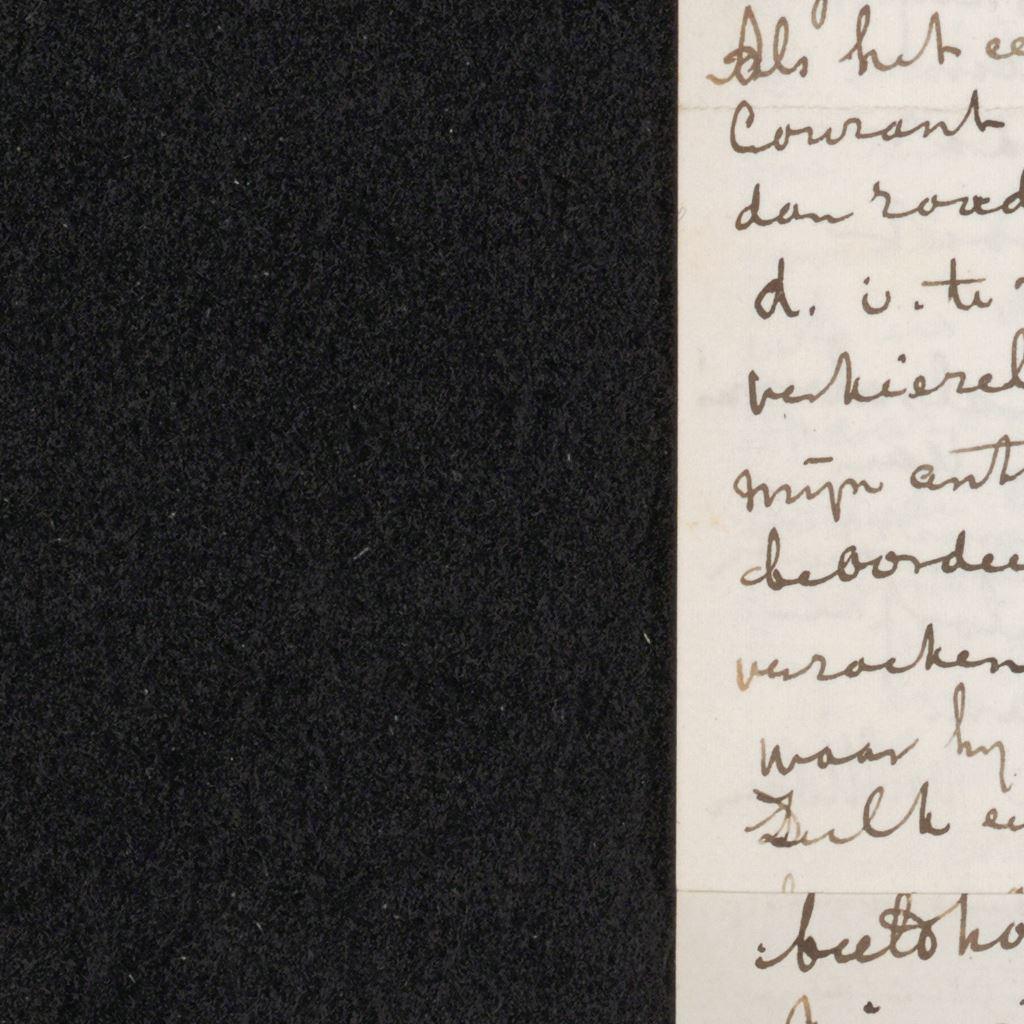 Als het ee
Courant
dan raad
d. i. te
verkiezel
mijn ant
beoordee
verzoeken
waar hy
Zulk ee